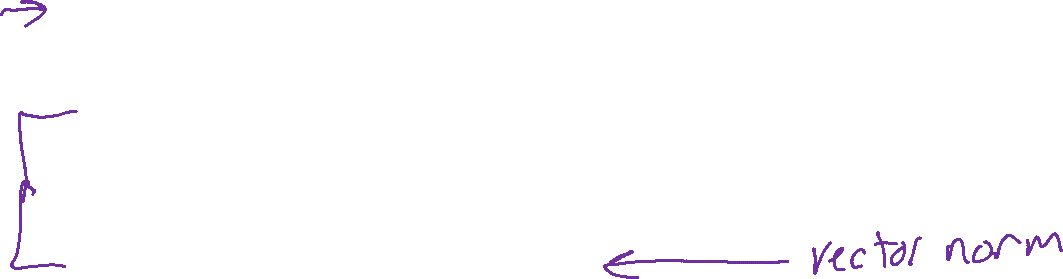 vector norm